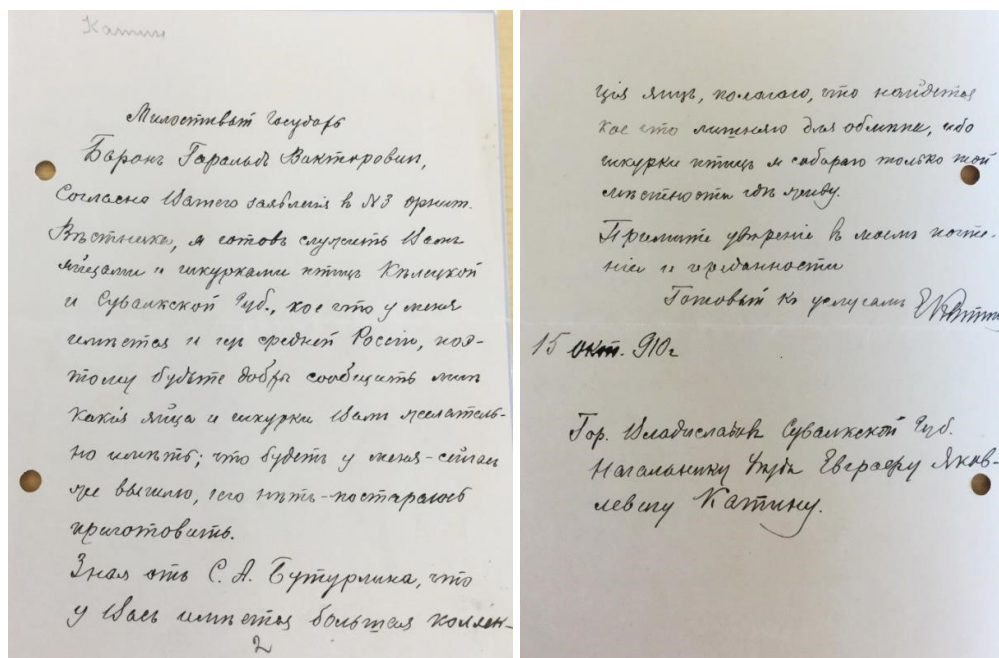 Катин
Милостивый Государь
Баронъ Гаральдъ Викторович,
Согласно Вашего заявленія в №3 орнит.
Вѣстника, я готовъ служить Вамъ
яйцами и шкурками птицъ Кѣлецкой
и Сувалкской Губ., кое что у меня
имѣется и из средней Россіи, поэ-
тому будьте добры сообщить мнѣ
какія яйца и шкурки Вамъ желатель-
но имѣть; что будетъ у меня - сейчас
же вышлю, чего нѣтъ - постараюсь
приготовить.
Зная отъ С. А. Бутурлина, что
у Васъ имѣется большая коллек-
2
ція яицъ, полагаю, что найдется
кое что лишняго для обмѣна, ибо
шкурки птицъ я собираю только той
мѣстности гдѣ живу.
Примите увѣреніе в моемъ почте-
ніи и преданности
Готовый къ услугамъ ЕКатин
15 окт. 910 г
Гор. Владиславовъ Сувалкской Губ.
Начальнику Евграфу Яков-
левичу Катину.